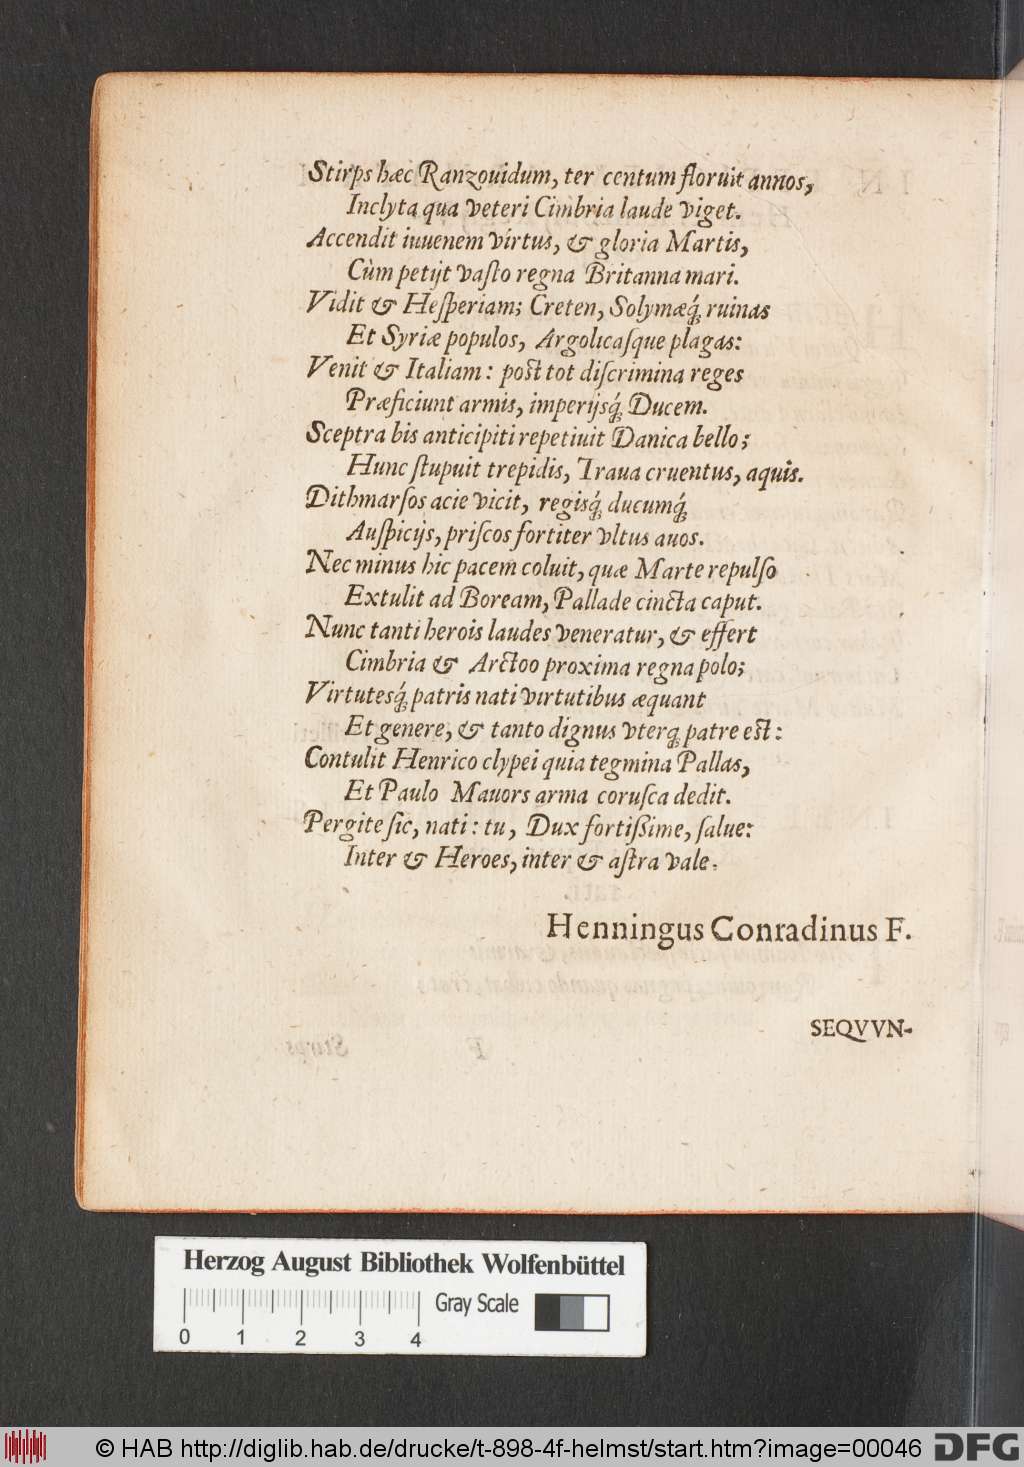 Stirps hæc Ranzouidum, ter centum floruit annos,
Inclyta qua veteri Cimbria laude viget.
Accendit iuuenem virtus, & gloria Martis,
Cùm petijt vaſto regna Britanna mari.
Vidit & Heſperiam; Creten, Solymæq́; ruinas
Et Syriæ populos, Argolicaſque plagas:
Venit & Italiam: poſt tot diſcrimina reges
Præficiunt armis, imperijsq́; Ducem.
Sceptra bis anticipiti repetiuit Danica bello;
Hunc ſtupuit trepidis, Traua cruentus, aquis.
Dithmarſos acie vicit, regisq́; ducumq́;
Auſpicijs, priſcos fortiter vltus auos.
Nec minus hic pacem coluit, quæ Marte repulſo
Extulit ad Boream, Pallade cincta caput.
Nunc tanti herois laudes veneratur, & effert
Cimbria & Arctoo proxima regna polo;
Virtutesq́; patris nati virtutibus æquant
Et genere, & tanto dignus vterq; patre eſt:
Contulit Henrico clypei quia tegmina Pallas,
Et Paulo Mauors arma coruſca dedit.
Pergite ſic, nati: tu, Dux fortißime, ſalue:
Inter & Heroes, inter & aſtra vale.
Henningus Conradinus F.
SEQVVN-
Herzog August Bibliothek Wolfenbüttel
Gray Scale
0 1 2 3 4
© HAB http://diglib.hab.de/drucke/t-898-4f-helmst/start.htm?image=00046 DFG